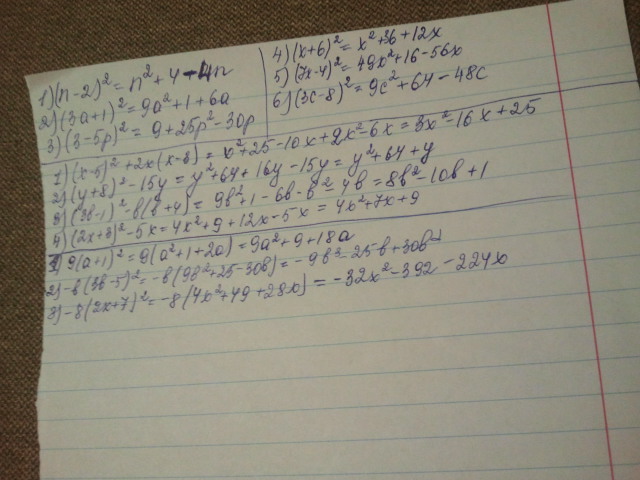 1) (n-2)² = n² + 4 - 4n
2) (3a+1)² = 9a² + 1 + 6a
3) (3-5p)² = 9 + 25p² - 30p
4) (x+6)² = x² + 36 + 12x
5) (7x-4)² = 49x² + 16 - 56x
6) (3c-8)² = 9c² + 64 - 48c
1) (x-5)² + 2x(x-3) = x² + 25 - 10x + 2x² - 6x = 3x² - 16x + 25
2) (y+8)² - 15y = y² + 64 + 16y - 15y = y² + 64 + y
3) (3b-1)² - b(b+4) = 9b² + 1 - 6b - b² - 4b = 8b² - 10b + 1
4) (2x+3)² - 5x = 4x² + 9 + 12x - 5x = 4x² + 7x + 9
1) 9(a+1)² = 9(a² + 1 + 2a) = 9a² + 9 + 18a
2) -b(3b-5)² = -b(9b² + 25 - 30b) = -9b³ - 25b + 30b²
3) -8(2x+7)² = -8(4x² + 49 + 28x) = -32x² - 392 - 224x